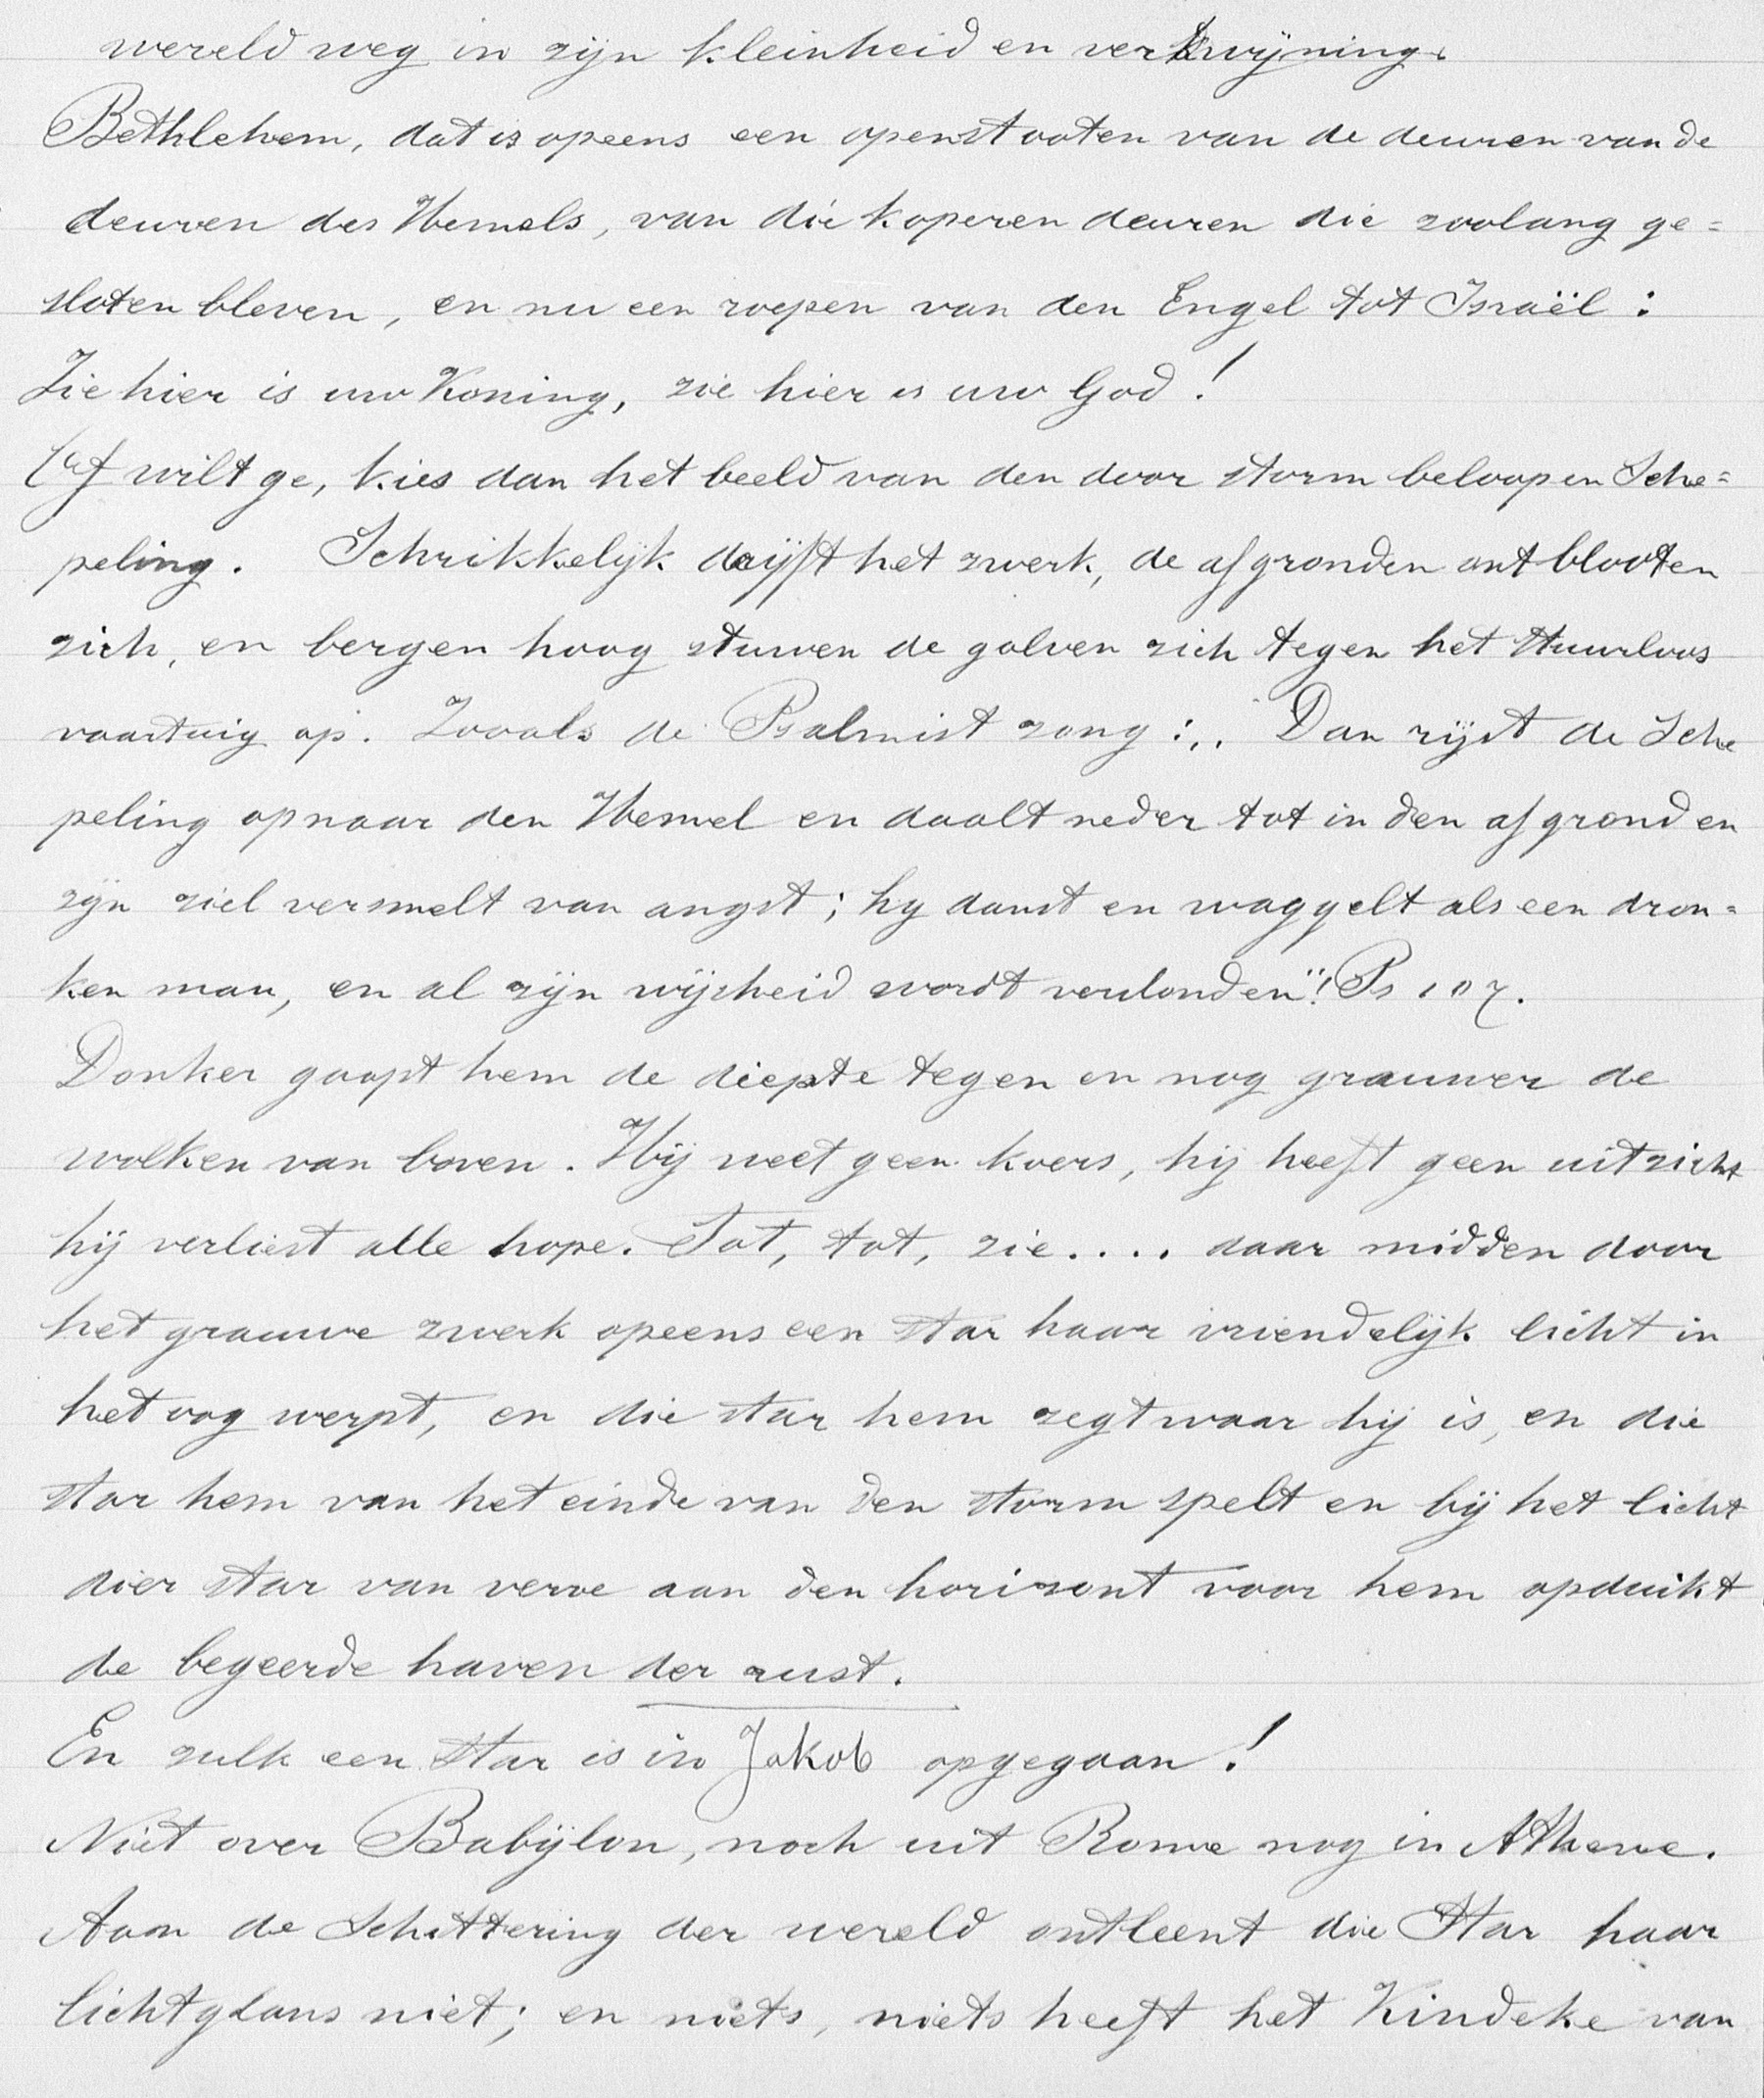 wereld weg in zijn kleinheid en verkwijning.
Bethlehem, dat is opeens een openstooten van de deuren van de
deuren des Hemels, van die koperen deuren die zoolang ge=
sloten bleven, en nu een roepen van den Engel tot Israël :
Zie hier is uw Koning, zie hier is uw God !
Of wilt ge, kies dan het beeld van den door storm beloopen Sche=
peling. Schrikkelijk drijft het zwerk, de afgronden ontblooten
zich, en bergen hoog stuwen de golven zich tegen het stuurloos
vaartuig op. Zooals de Psalmist zong :,, Dan rijst de Sche
peling op naar den Hemel en daalt neder tot in den afgrond en
zijn ziel versmelt van angst ; hy danst en waggelt als een dron=
ken man, en al zijn wijsheid wordt verslonden"! Ps 107.
Donker gaapt hem de diepte tegen en nog grauwer de
wolken van boven. Hij weet geen koers, hij heeft geen uitzicht
hij verliest alle hope. Tot, tot, zie.... daar midden door
het grauwe zwerk opeens een star haar vriendelijk licht in
het oog werpt, en die star hem zegt waar hij is, en die
star hem van het einde van den storm spelt en bij het licht
dier star van verre aan den horizont voor hem opduikt
de begeerde haven der rust.
En zulk een Star is in Jakob opgegaan !
Niet over Babijlon, noch uit Rome nog in Athene.
Aan de Schittering der wereld ontleent die Star haar
lichtglans niet ; en niets, niets heeft het Kindeke van